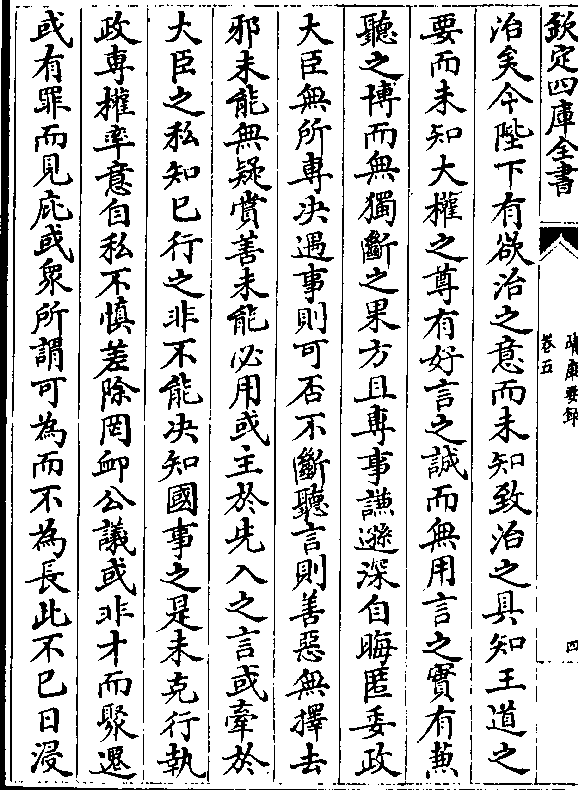 欽定四庫全書
卷五
四
治矣今陛下有欲治之意而未知致治之具知王道之
要而未知大權之尊有好言之誠而無用言之實有蒹
聽之博而無獨斷之果方且専事謙遜深自晦匿委政
大臣無所専决遇事則可否不斷聽言則善惡無擇去
邪未能無疑賞善未能必用或主於先入之言或牽於
大臣之私知已行之非不能决知國事之是未克行執
政専權率意自私不慎差除罔衈公議或非才而驟遷
或有罪而見庇或衆所謂可為而不為長此不已日浸